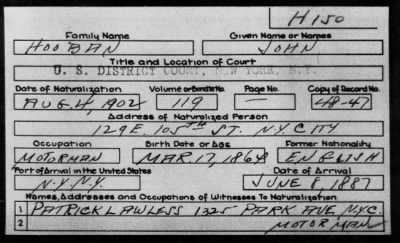 H150
Family Name Given Name or Names
HOOBAN JOHN
Title and Location of Court
U. S. DISTRICT COURT, NEW YORK, N.Y.
Date of Naturalization Volume or Bundle No. Page No. Copy of Record No.
AUG. 4, 1902 119 — 48-47
Address of Naturalized Person
129 E. 105TH ST. N.Y. CITY
Occupation Birth Date or Age Former Nationality
MOTORMAN MAR. 17, 1864 ENGLISH
Port of Arrival in the United States Date of Arrival
N.Y. N.Y. JUNE 8, 1887
Names, Addresses and Occupations of Witnesses To Naturalization
1 PATRICK LAWLESS 1325 PARK AVE N.Y.C.
2 MOTORMAN